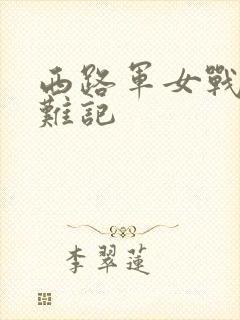 西路軍女戰
難記
李翠蓮